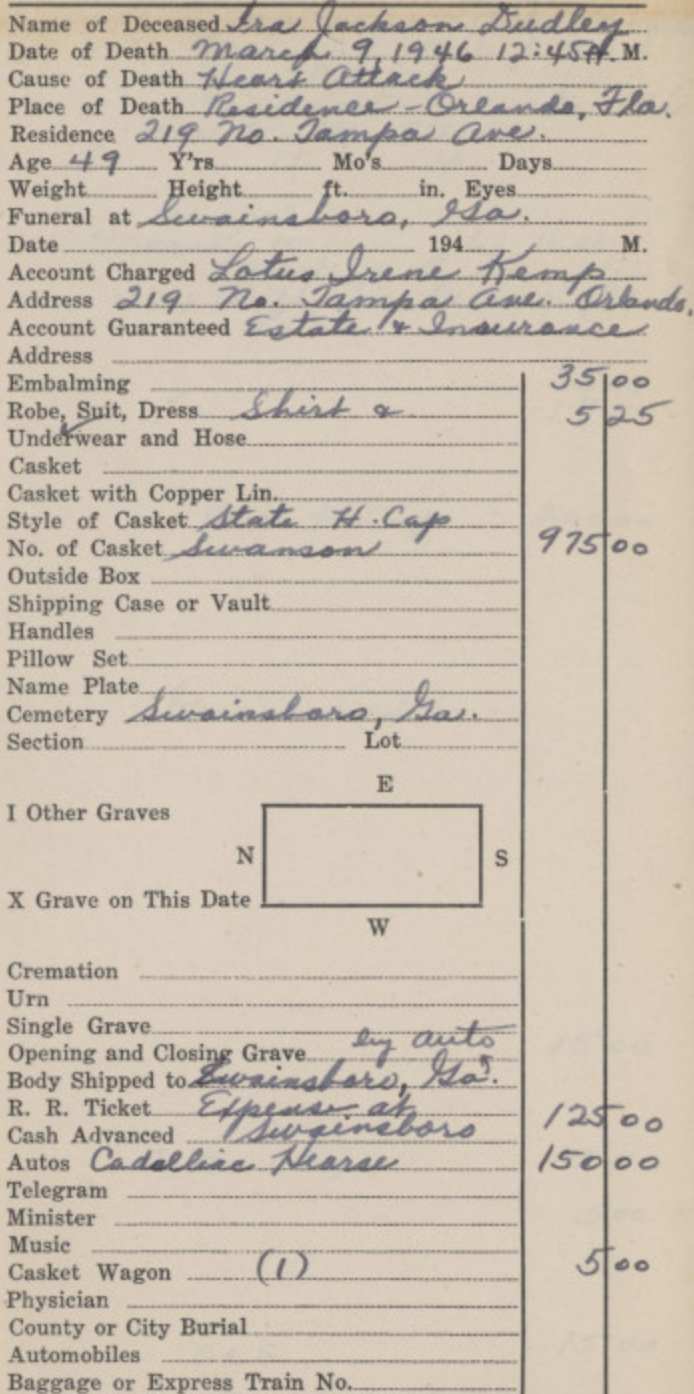 Name of Deceased Ira Jackson Dudley
Date of Death March 9, 1946 12:45 A. M.
Cause of Death Heart Attack
Place of Death Residence - Orlando, Fla.
Residence 219 No. Tampa Ave.
Age 49 Y'rs Mo's Days
Weight Height ft. in. Eyes
Funeral at Swainsboro, Ga.
Date 194 M.
Account Charged Lotus Irene Kemp
Address 219 No. Tampa Ave. Orlando,
Account Guaranteed Estate & Insurance
Address
Embalming 35 00
Robe, Suit, Dress Shirt & 5 25
Underwear and Hose
Casket
Casket with Copper Lin.
Style of Casket State H. Cap
No. of Casket Swanson 975 00
Outside Box
Shipping Case or Vault
Handles
Pillow Set
Name Plate
Cemetery Swainsboro, Ga.
Section Lot
E
I Other Graves
N S
X Grave on This Date
W
Cremation
Urn
Single Grave
Opening and Closing Grave by auto
Body Shipped to Swainsboro, Ga.
R. R. Ticket Expense at
Cash Advanced Swainsboro 125 00
Autos Cadelliac Hearse 150 00
Telegram
Minister
Music
Casket Wagon (1) 5 00
Physician
County or City Burial
Automobiles
Baggage or Express Train No.